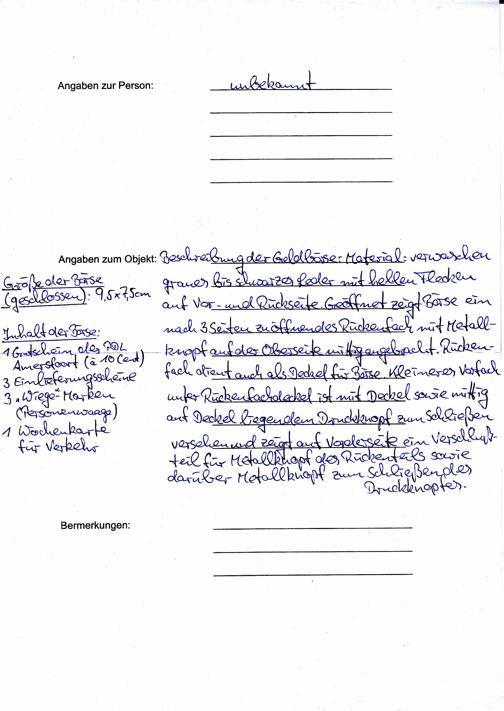 Angaben zur Person: unbekannt
Angaben zum Objekt: Beschreibung der Geldbörse: Material: verwaschen
graues bis schwarzes Leder mit hellen Flecken
auf Vor- und Rückseite. Geöffnet zeigt Börse ein
nach 3 Seiten zu öffnendes Rückenfach mit Metall-
knopf auf der Oberseite mittig angebracht. Rücken-
fach dient auch als Deckel für Börse. Kleineres Vorfach
unter Rückenfachdeckel ist mit Deckel sowie mittig
auf Deckel liegendem Druckknopf zum Schließen
versehen und zeigt auf Vorderseite ein Verschluß-
teil für Metallknopf des Rückenteils sowie
darüber Metallknopf zum Schließen des
Druckknopfes.
Größe der Börse
(geschlossen): 9,5 x 7,5cm
Inhalt der Börse:
1 Gutschein des
Amersfoort (à 10 Cent)
3 Einlieferungsscheine
3 "Wiege"-Marken
(Personenwaage)
1 Wochenkarte
für Verkehr
Bermerkungen: